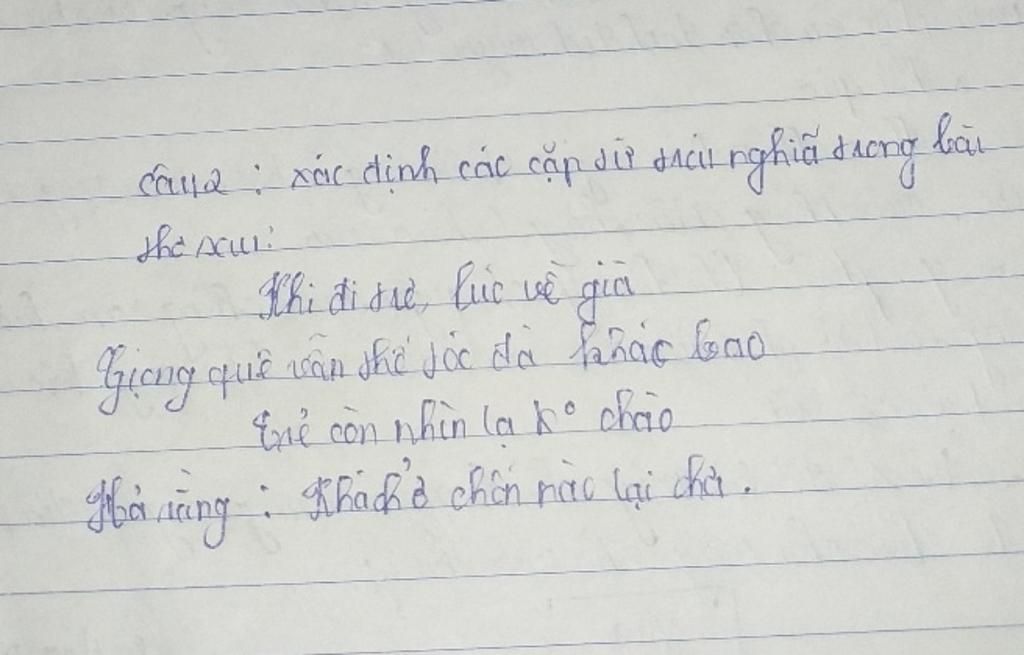 Câu 2 : xác định các cặp từ trái nghiã trong bài
thơ sau:
Khi đi trẻ, lúc về già
Giọng quê vẫn thế tóc đà khác bao
trẻ còn nhìn lạ k° chào
Hỏi rằng : Khách ở chốn nào lại chơi.